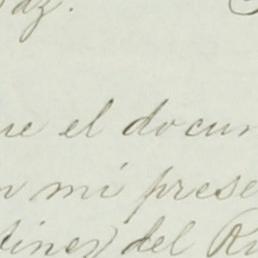 az.
ue el docum
n mi prese
tinez del Ri